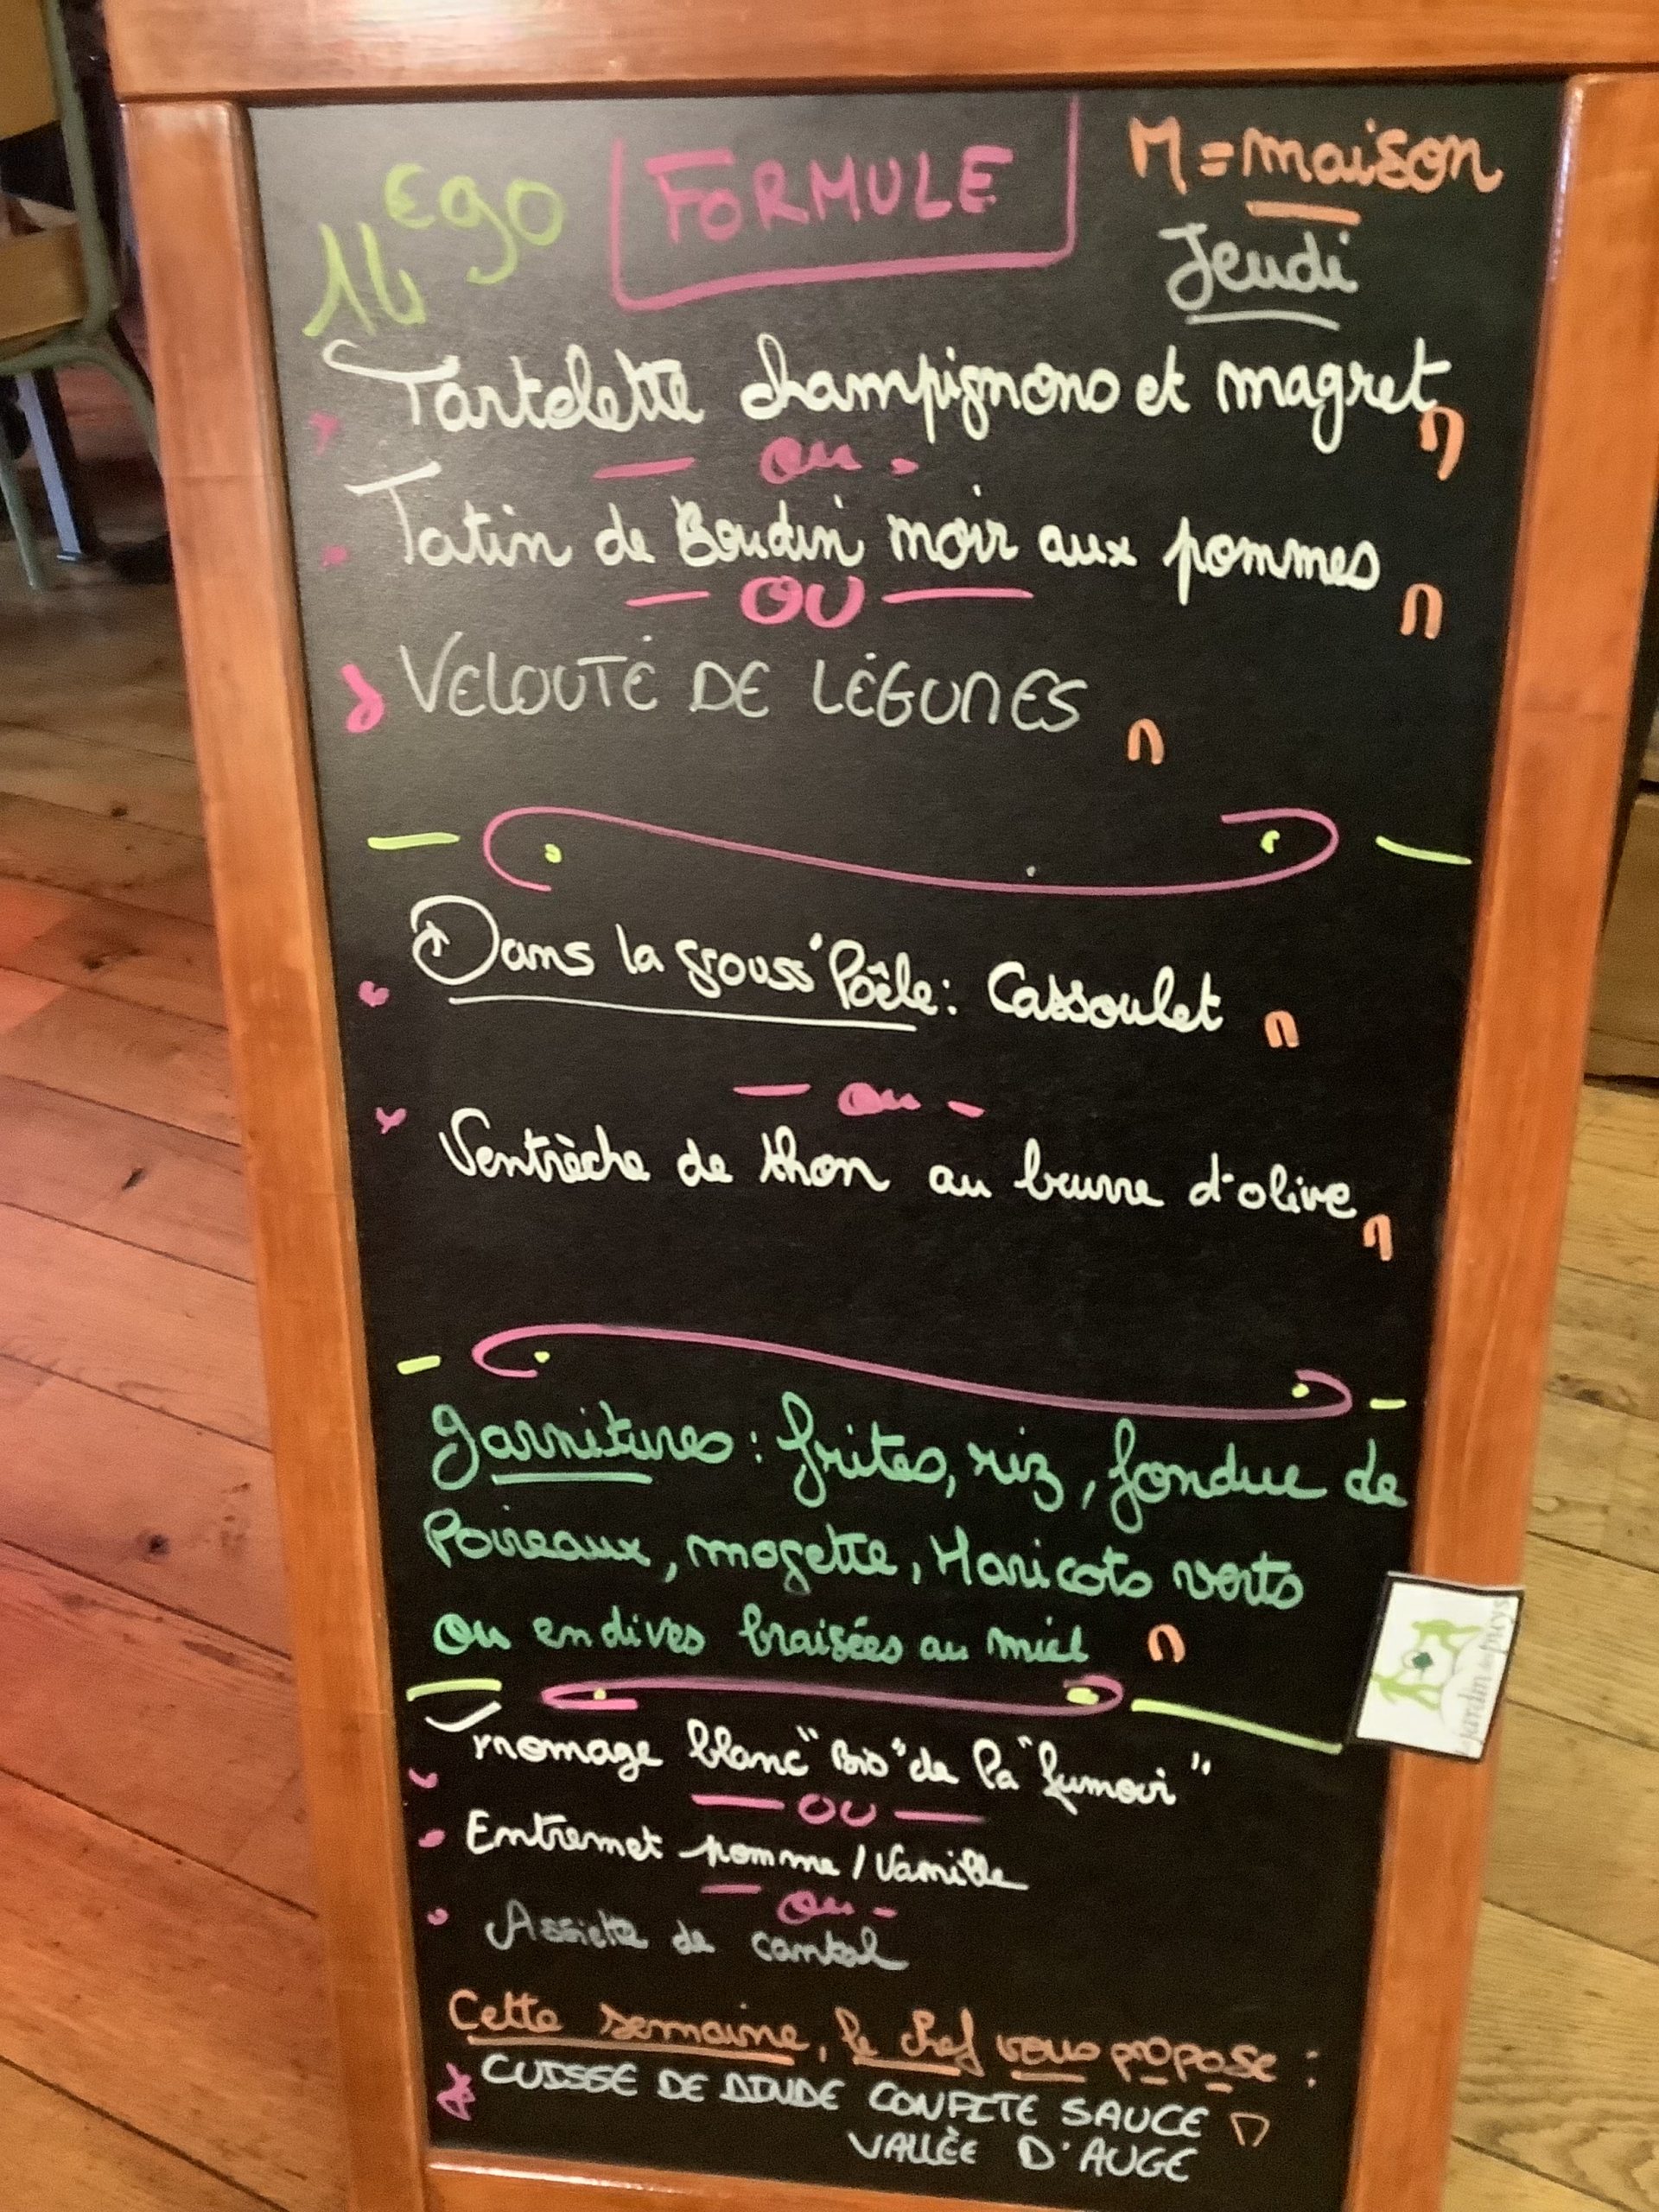 14€90
FORMULE
M = maison
Jeudi
Tartelette champignons et magret M
ou
Tatin de Boudin noir aux pommes M
OU
VELOUTÉ DE LÉGUMES M
Dans la grouss' Pôele : Cassoulet M
ou
Ventrèche de thon au beurre d'olive M
Garnitures : frites, riz, fondue de
Poireaux, mogette, Haricots verts
ou endives braisées au miel M
Fromage blanc "Bio" de la
OU
Entremet pomme / Vanille
ou
Assiette de cantal
Cette semaine, le chef vous propose :
CUISSE DE DINDE CONFITE SAUCE M
VALLÉE D'AUGE
jardin des pays